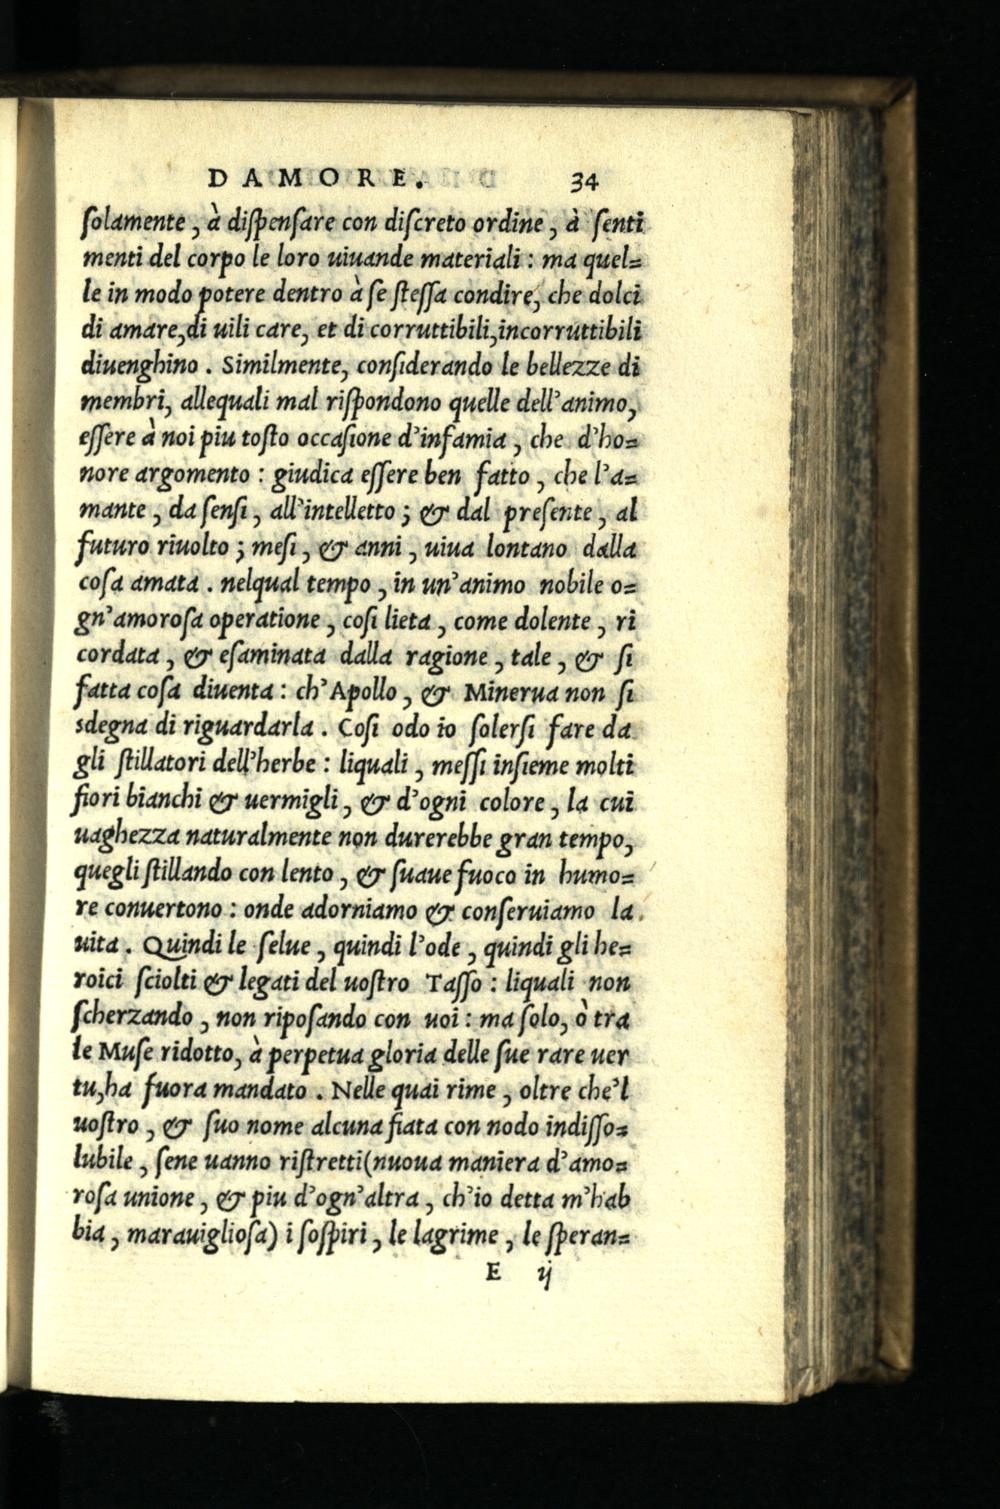 DAMORE. 34
ſolamente, à diſpenſare con diſcreto ordine, à ſenti
menti del corpo le loro uiuande materiali : ma quel=
le in modo potere dentro à ſe ſteſſa condire, che dolci
di amare,di uili care, et di corruttibili,incorruttibili
diuenghino. Similmente, conſiderando le bellezze di
membri, allequali mal riſpondono quelle dell'animo,
eſſere à noi piu toſto occaſione d'infamia, che d'ho=
nore argomento : giudica eſſere ben fatto, che l'a=
mante, da ſenſi, all'intelletto ; & dal preſente, al
futuro riuolto ; meſi, & anni, uiua lontano dalla
coſa amata. nelqual tempo, in un'animo nobile o=
gn'amoroſa operatione, coſi lieta, come dolente, ri
cordata, & eſaminata dalla ragione, tale, & ſi
fatta coſa diuenta : ch'Apollo, & Minerua non ſi
sdegna di riguardarla. Coſi odo io ſolerſi fare da
gli ſtillatori dell'herbe : liquali, meſſi inſieme molti
fiori bianchi & uermigli, & d'ogni colore, la cui
uaghezza naturalmente non durerebbe gran tempo,
quegli ſtillando con lento, & ſuaue fuoco in humo=
re conuertono : onde adorniamo & conſeruiamo la
uita. Quindi le ſelue, quindi l'ode, quindi gli he=
roici ſciolti & legati del uoſtro Taſſo : liquali non
ſcherzando, non ripoſando con uoi : ma ſolo, ò tra
le Muſe ridotto, à perpetua gloria delle ſue rare uer
tu,ha fuora mandato. Nelle quai rime, oltre che'l
uoſtro, & ſuo nome alcuna fiata con nodo indiſſo=
lubile, ſene uanno riſtretti(nuoua maniera d'amo=
roſa unione, & piu d'ogn'altra, ch'io detta m'hab
bia, marauiglioſa) i ſoſpiri, le lagrime, le ſperan=
E ij